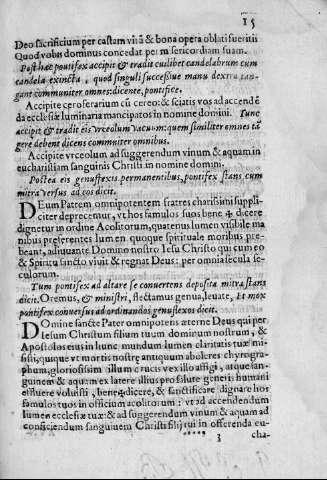 15
Deo sacrificium per castam vitā & bona opera oblati fueritis
Quod vobis dominus concedat per misericordiam suam.
Post hæc pontifax accipit & tradit cuilibet candelabrum cum
candela extincta, quod singuli successiue manu dextra tan-
gant communiter omnes: dicente, pontifice.
Accipite ceroferarium cū cereo: & sciatis vos ad accendē
da ecclesiæ luminaria mancipatos in nomine domini. Tunc
accipit & tradit eis vrceolum vacuum: quem similiter omnes tā
gere debent dicens communiter omnibus.
Accipite vrceolum ad suggerendum vinum & aquam in
eucharistiam sanguinis Christi in nomine domini.
Postea eis genuflexis permanentibus, pontifex stans cum
mitra versus ad eos dicit.
DEum Patrem omnipotentem fratres charissimi suppli-
citer deprecemur, vt hos famulos suos bene ✠ dicere
dignetur in ordine Acolitorum, quatenus lumen visibile ma
nibus præferentes lumen quoque spirituale moribus præ-
beant, adiuuante Domino nostro Iesu Christo qui cum eo
& Spiritu sancto viuit & regnat Deus: per omnia secula se-
culorum.
Tum pontifex ad altare se conuertens deposita mitra stans
dicit. Oremus, & ministri, flectamus genua, leuate, Et mox
pontifex conuersus ad ordinandos genuflexos dicit.
DOmine sancte Pater omnipotens æterne Deus qui per
Iesum Christum filium tuum dominum nostrum, &
Apostolos eius in hunc mundum lumen claritatis tuæ mi-
sisti, quique vt mortis nostræ antiquum aboleres chyrogra-
phum, gloriosissimæ illum crucis vexillo affigi, atque san-
guinem & aquam ex latere illius pro salute generis humani
effluere voluisti, bene✠dicere, & sanctificare dignare hos
famulos tuos in officium acolitorum: vt ad accendendum
lumen ecclesiæ tuæ: & ad suggerendum vinum & aquam ad
conficiendum sanguinem Christi filij tui in offerenda eu-
***** 3 cha-